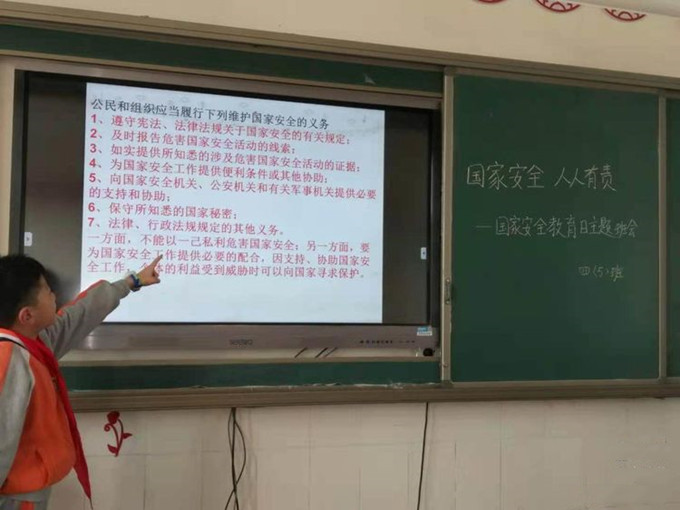 公民和组织应当履行下列维护国家安全的义务
1、遵守宪法、法律法规关于国家安全的有关规定；
2、及时报告危害国家安全活动的线索；
3、如实提供所知悉的涉及危害国家安全活动的证据；
4、为国家安全工作提供便利条件或其他协助；
5、向国家安全机关、公安机关和有关军事机关提供必要
的支持和协助；
6、保守所知悉的国家秘密；
7、法律、行政法规规定的其他义务。
一方面，不能以一己私利危害国家安全；另一方面，要
为国家安全工作提供必要的配合，因支持、协助国家安
全工作，体的利益受到威胁时可以向国家寻求保护。
国家安全 人人有责
—国家安全教育日主题班会
四（5）班